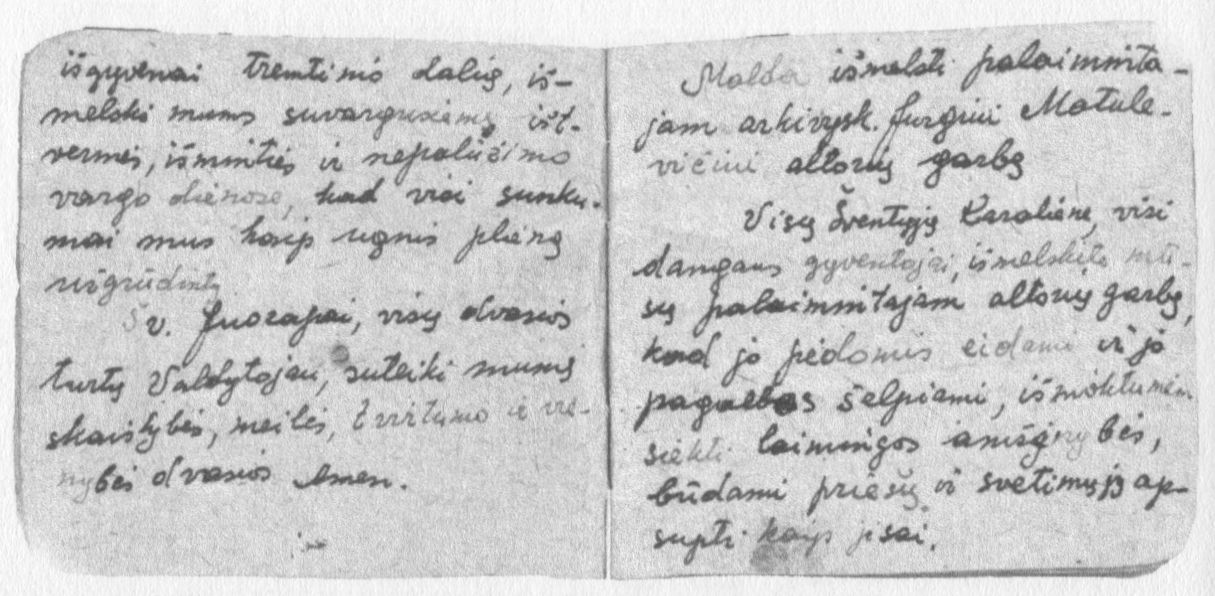 išgyvenai tremtinio dalią, iš-
melski mums suvargusiems išt-
vermės, išminties ir nepalūžimo
vargo dienose, kad visi sunku-
mai mus kaip ugnis plieną
užgrūdintų
Šv. Juozapai, visų dvasios
turtų Valdytojau, suteiki mums
skaistybės, meilės, tvirtumo ir vie-
nybės dvasios Amen.
Malda išmelsti palaiminta-
jam arkivysk. Jurgiui Matule-
vičiui altorių garbę
Visų Šventųjų Karaliene, visi
dangaus gyventojai, išmelskite mū-
sų palaimintajam altorių garbę,
kad jo pėdomis eidami ir jo
pagalbos šelpiami, išmoktumėm
siekti laimingos amžinybės,
būdami priešų ir svetimųjų ap-
supti kaip jisai.